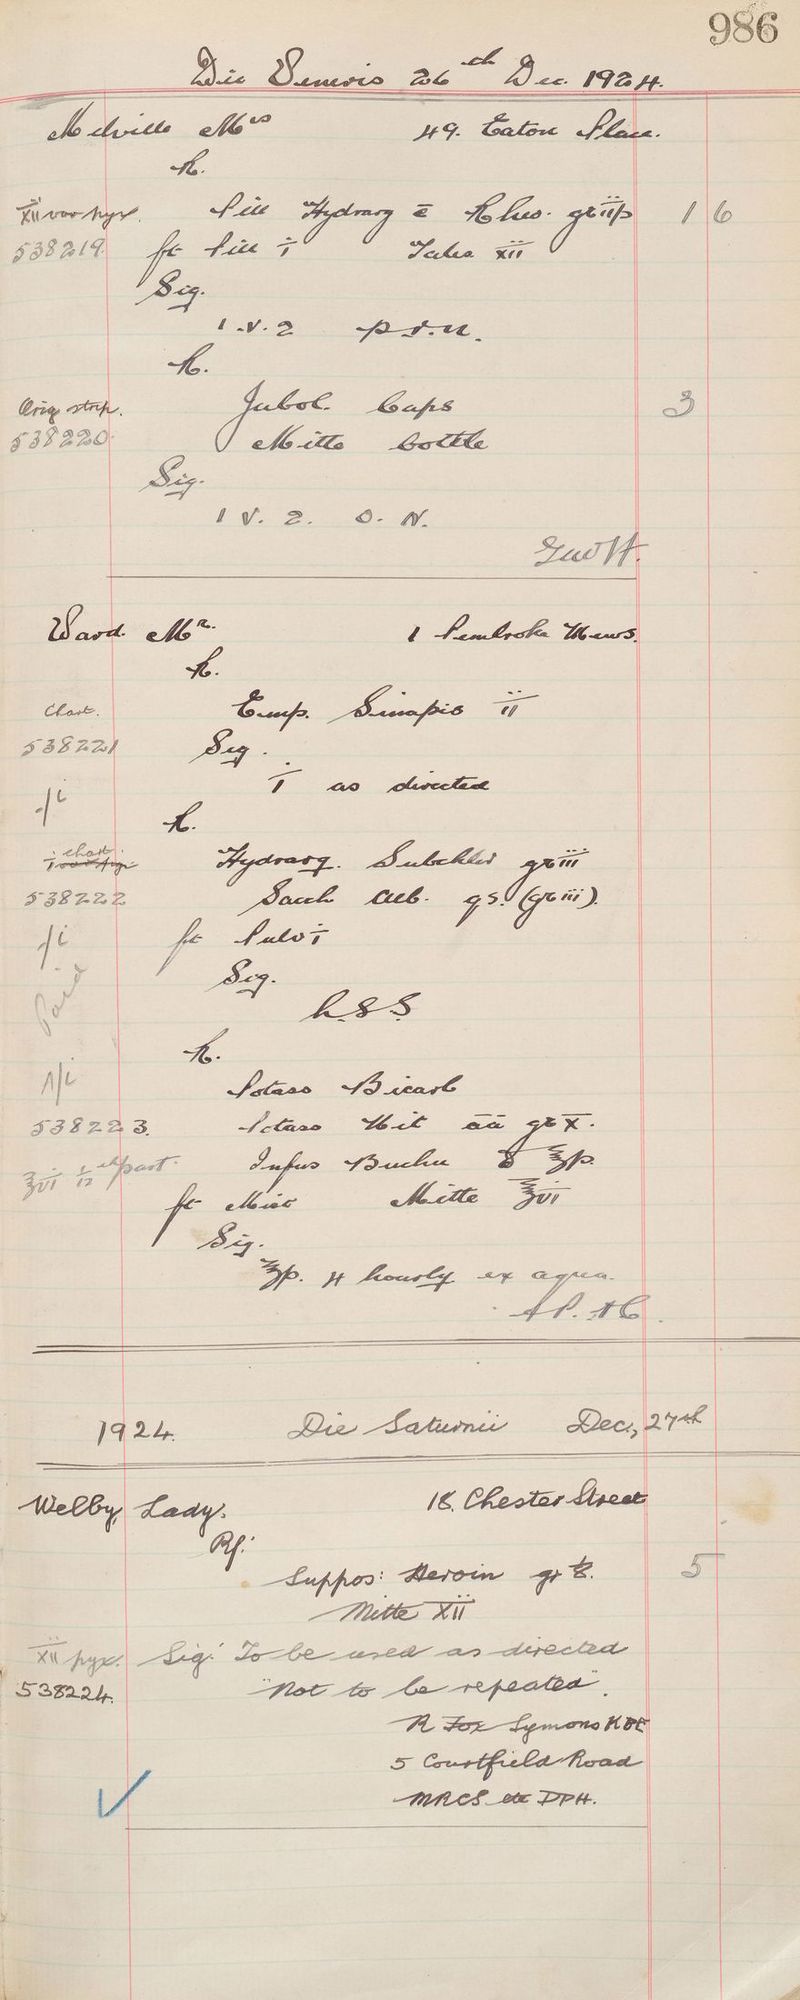 986
Die Veneris 26th Dec. 1924.
Melville Mrs 49. Eaton Place.
R.
XII 538219. Pill Hydrarg c̄ Rheo. gr iiip 1 6
ft Pill i Tales XII
Sig.
1. v. 2 p.r.n.
R.
Orig strip. Jubol. Caps 3
538220. Mitte bottle
Sig.
1 v. 2. O. N.
Ward. Mr. 1 Pembroke Mews.
R.
Chart. Emp. Sinapis ii
538221 Sig.
i as directed
-/i
R.
chart Hydrarg. Subchlor gr iii
538222 Sacch Alb. qs. (gr iii).
-/i ft Pulv i
Paid Sig.
h.s.s.
R.
1/i Potass Bicarb
538223. Potass Nit āā gr x.
ʒvi 1/12 Infus Buchu ℥p.
ft Mist Mitte ℥vi
Sig.
℥p. 4 hourly ex aqua.
1924. Die Saturnii Dec., 27th
Welby, Lady. 18. Chester Street
Rf:
Suppos: Heroin gr 5
Mitte XII
XII pyx. Sig: To be used as directed
538224. "Not to be repeated".
R Fox Symons KBE
5 Courtfield Road
MRCS etc DPH.